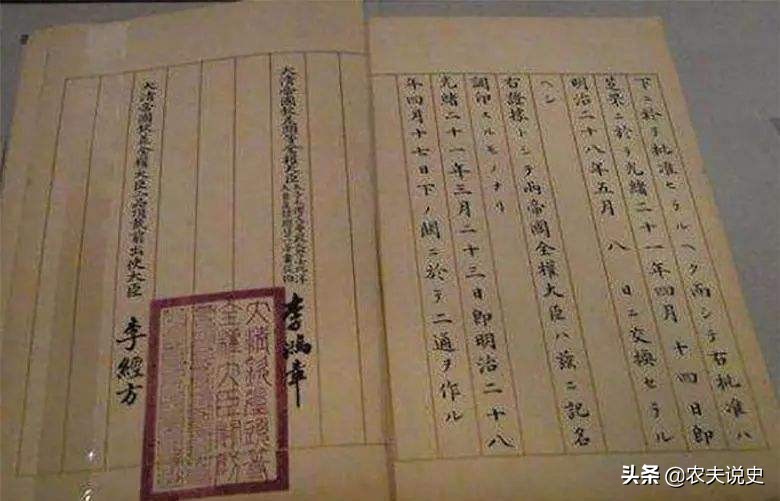 下ニ於テ批准セラルヘク而シテ右批准ハ
芝罘ニ於テ光緒二十一年四月十四日即
明治二十八年五月八日ニ交換セラル
ヘシ
右證據トシテ兩帝國全權大臣ハ茲ニ記名
調印スルモノナリ
光緒二十一年三月二十三日即明治二十八
年四月十七日下ノ關ニ於テ二通ヲ作ル
大清帝國欽差頭等全權大臣
李鴻章
大清帝國欽差全權大臣二品頂戴前出使大臣 李經方
头条 @农夫说史